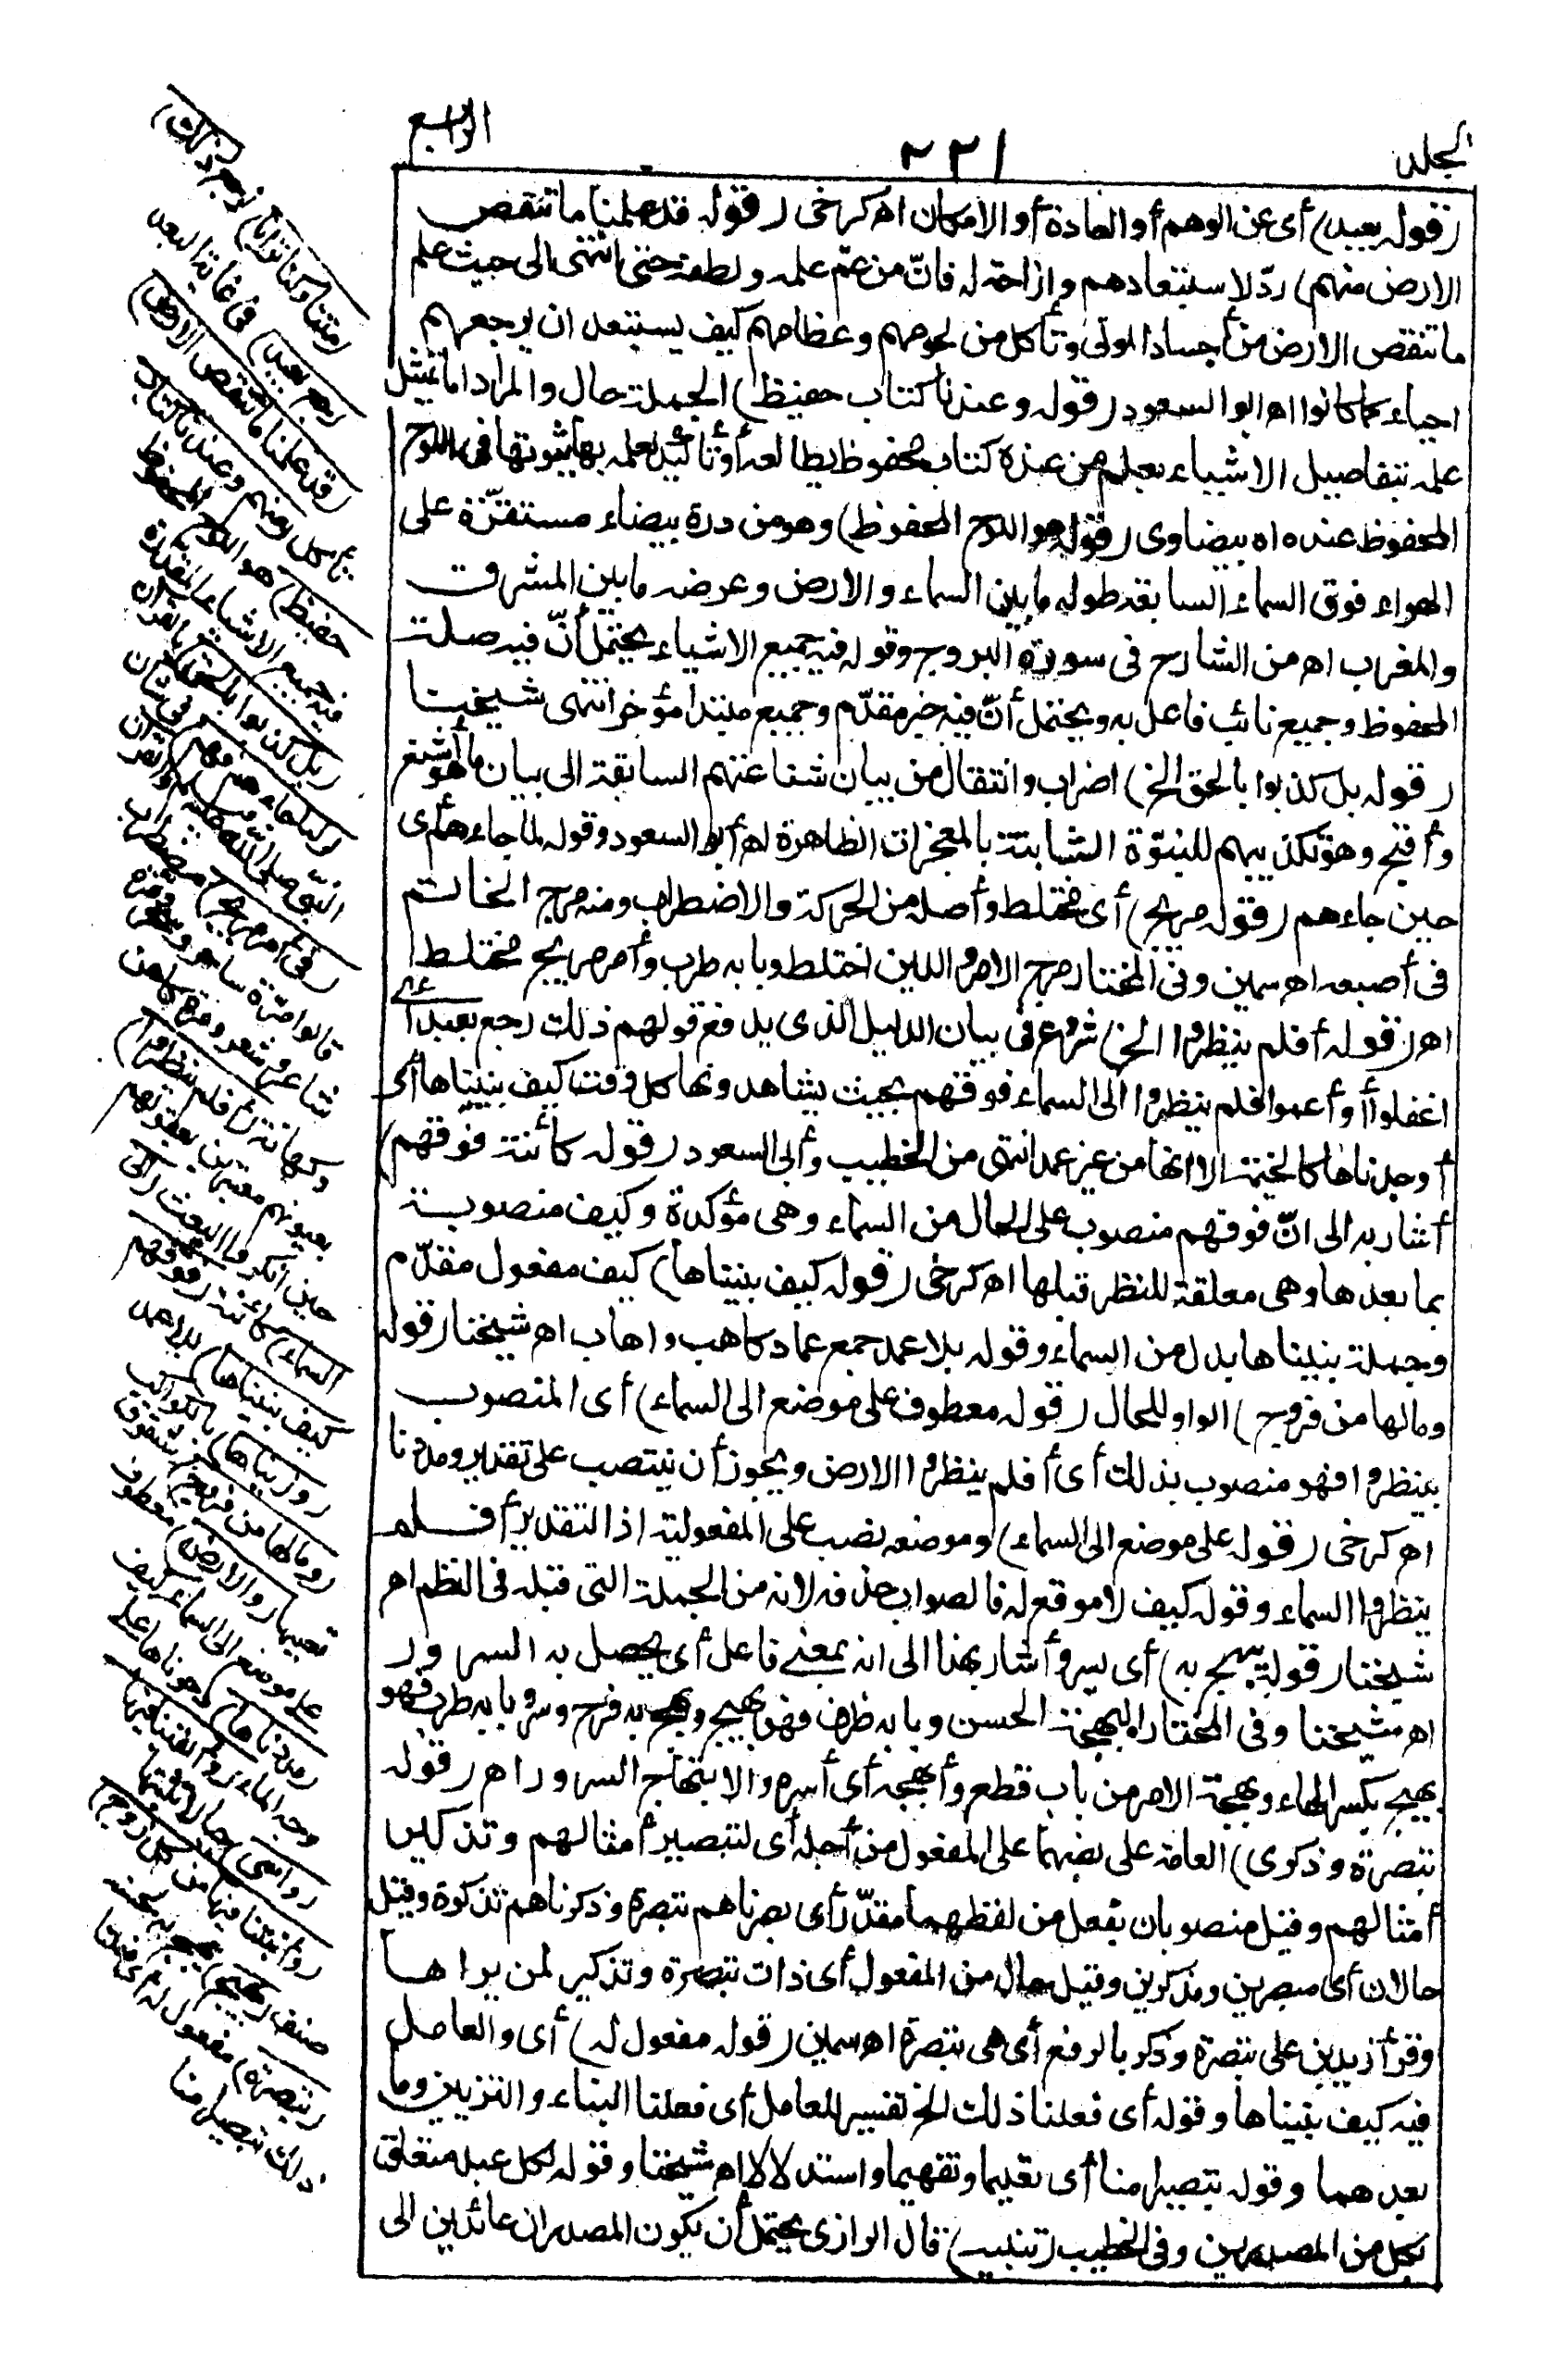 المجلد
٢٢١
الرابع
(قوله بعيد) أى عن الوهم أو العادة أو الامكان اه كرخى (قوله قد علمنا ما تنقص
الارض منهم) ردّ لاستبعادهم وازاحة له فانّ من عمّ علمه ولطفه حتى انتهى الى حيث علم
ما تنقص الارض من أجساد الموتى وتأكل من لحومهم وعظامهم كيف يستبعد ان يرجعهم
احياء كما كانوا اه ابو السعود (قوله وعندنا كتاب حفيظ) الجملة حال والمراد اما تمثيل
علمه بتفاصيل الاشياء بعلم من عنده كتاب محفوظ يطالعه أو تأكيد لعلمه بها بثبوتها فى اللوح
المحفوظ عنده اه بيضاوى (قوله هو اللوح المحفوظ) وهو من درة بيضاء مستقرّة على
الهواء فوق السماء السابعة طوله ما بين السماء والارض وعرضه ما بين المشرق
والمغرب اه من الشارح فى سورة البروج وقوله فيه جميع الاشياء يحتمل أنّ فيه صلة
المحفوظ وجميع نائب فاعل به ويحتمل أنّ فيه خبر مقدّم وجميع مبتدا مؤخر انتهى شيخنا
(قوله بل كذبوا بالحق الخ) اضراب وانتقال من بيان شناعتهم السابقة الى بيان ما هو أشنع
وأقبح وهو تكذيبهم للنبوّة الثابتة بالمعجزات الظاهرة اه أبو السعود وقوله لما جاءهم أى
حين جاءهم (قوله مريج) أى مختلط وأصله من الحركة والاضطراب ومنه مرج الخاتم
فى أصبعه اه سمين وفى المختار مرج الامر والدين اختلط وبابه طرب وأمر مريج مختلط
اه (قوله أفلم ينظروا الخ) شروع فى بيان الدليل الذى يدفع قولهم ذلك رجع بعيد أى
اغفلوا أو أعموا فلم ينظروا الى السماء فوقهم بحيث يشاهدونها كل وقت كيف بنيناها أى
أوجدناها كالخيمة الا انها من غير عمد انتهى من الخطيب وأبى السعود (قوله كائنة فوقهم)
أشار به الى انّ فوقهم منصوب على الحال من السماء وهى مؤكدة وكيف منصوبة
بما بعدها وهى معلقة للنظر قبلها اه كرخى (قوله كيف بنيناها) كيف مفعول مقدّم
وجملة بنيناها بدل من السماء وقوله بلا عمد جمع عماد كاهب واهاب اه شيخنا (قوله
ومالها من فروج) الواو للحال (قوله معطوف على موضع الى السماء) أى المنصوب
بينظروا فهو منصوب بذلك أى أفلم ينظروا الارض ويجوز أن ينتصب على تقدير ومددنا
اه كرخى (قوله على موضع الى السماء) وموضعه نصب على المفعولية اذ التقدير أفلم
ينظروا السماء وقوله كيف لا موقع له فالصواب حذفه لانه من الجملة التى قبله فى النظم اه
شيخنا (قوله يبهج به) أى يسر وأشار بهذا الى انه بمعنى فاعل أى يحصل به السرور
اه شيخنا وفى المختار البهجة الحسن وبابه ظرف فهو بهيج وبهج به فرح وسر وبابه طرب فهو
بهيج بكسر الهاء وبهجة الامر من باب قطع وأبهجه أى أسره والابتهاج السرور اه (قوله
تبصرة وذكرى) العامة على نصبهما على المفعول من أجله أى لتبصير أمثالهم وتذكير
أمثالهم وقيل منصوبان بفعل من لفظهما مقدّر أى بصرناهم تبصرة وذكرناهم تذكرة وقيل
حالان أى مبصرين ومذكرين وقيل حال من المفعول أى ذات تبصرة وتذكير لمن يراها
وقرأ زيد بن على تبصرة وذكر بالرفع أى هى تبصرة اه سمين (قوله مفعول له) أى والعامل
فيه كيف بنيناها وقوله أى فعلنا ذلك الخ تفسير للعامل أى فعلنا البناء والتزيين وما
بعدهما وقوله تبصيرا منا أى تعليما وتفهيما واستدلالا اه شيخنا وقوله لكل عبد متعلق
بكل من المصدرين وفى الخطيب (تنبيه) قال الرازى يحتمل أن يكون المصدران عائدين الى
(متنا وكنا ترابا) نرجع (ذلك
رجع بعيد) فى غاية البعد
(قد علمنا ما تنقص الارض)
تأكل (منهم وعندنا كتاب
حفيظ) هو اللوح المحفوظ
فيه جميع الاشياء المقدرة
(بل كذبوا بالحق) بالقرآن
(لما جاءهم فهم) فى شأن
النبى صلى الله عليه وسلم والقرآن
(فى أمر مريج) مضطرب
قالوا مرّة ساحر وسحر ومرّة
شاعر وشعر ومرّة كاهن
وكهانة (أفلم ينظروا)
بعيونهم معتبرين بعقولهم
حين أنكروا البعث (الى
السماء) كائنة (فوقهم
كيف بنيناها) بلا عمد
(وزيناها) بالكواكب
(ومالها من فروج) شقوق
تعيبها (والارض) معطوف
على موضع الى السماء كيف
(مددناها) دحوناها على
وجه الماء (وألقينا فيها
رواسى) جبالا تثبتها
(وأنبتنا فيها من كل زوج)
صنف (بهيج) يبهج به لحسنه
(تبصرة) مفعول له أى فعلنا
ذلك تبصيرا منا